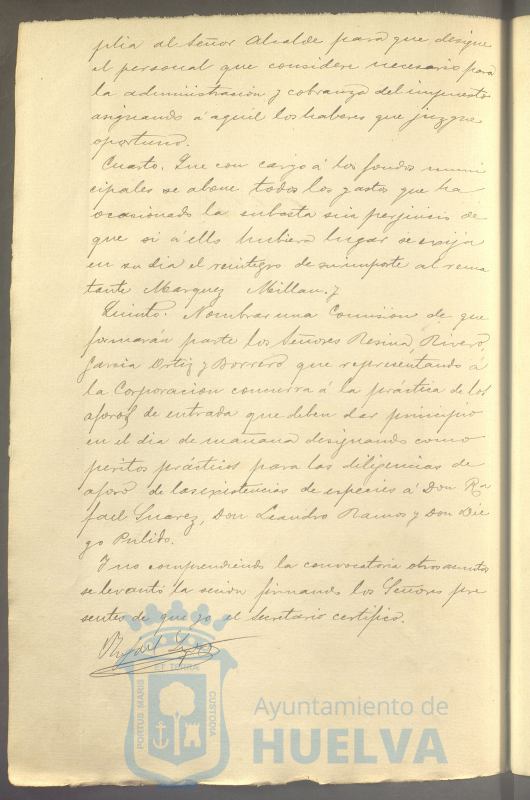 plia al Señor Alcalde para que designe
el personal que considere necesario para
la administración y cobranza del impuesto
asignando á aquel los haberes que juzgue
oportuno.
Cuarto. Que con cargo á los fondos muni
cipales se abone todos los gastos que ha
ocasionado la subasta sin perjuicio de
que si á ello hubiera lugar se exija
en su dia el reintegro de su importe al rema
tante Marquez Millan. y
Quinto. Nombrar una Comisión de que
formarán parte los Señores Resina, Rivero,
Garcia Ortiz y Borrero que representando á
la Corporacion concurra á la práctica de los
aforos de entrada que deben dar principio
en el dia de mañana designando como
peritos prácticos para las diligencias de
aforo de las existencias de especies á Don Ra
fael Suarez, Don Leandro Ramos y Don Die
go Pulido.
Y no comprendiendo la convocatoria otros asuntos
se levantó la sesion firmando los Señores pre
sentes de que yo el Secretario certifico.
PORTUS MARIS
ET TERRÆ
CUSTODIA
Ayuntamiento de
HUELVA